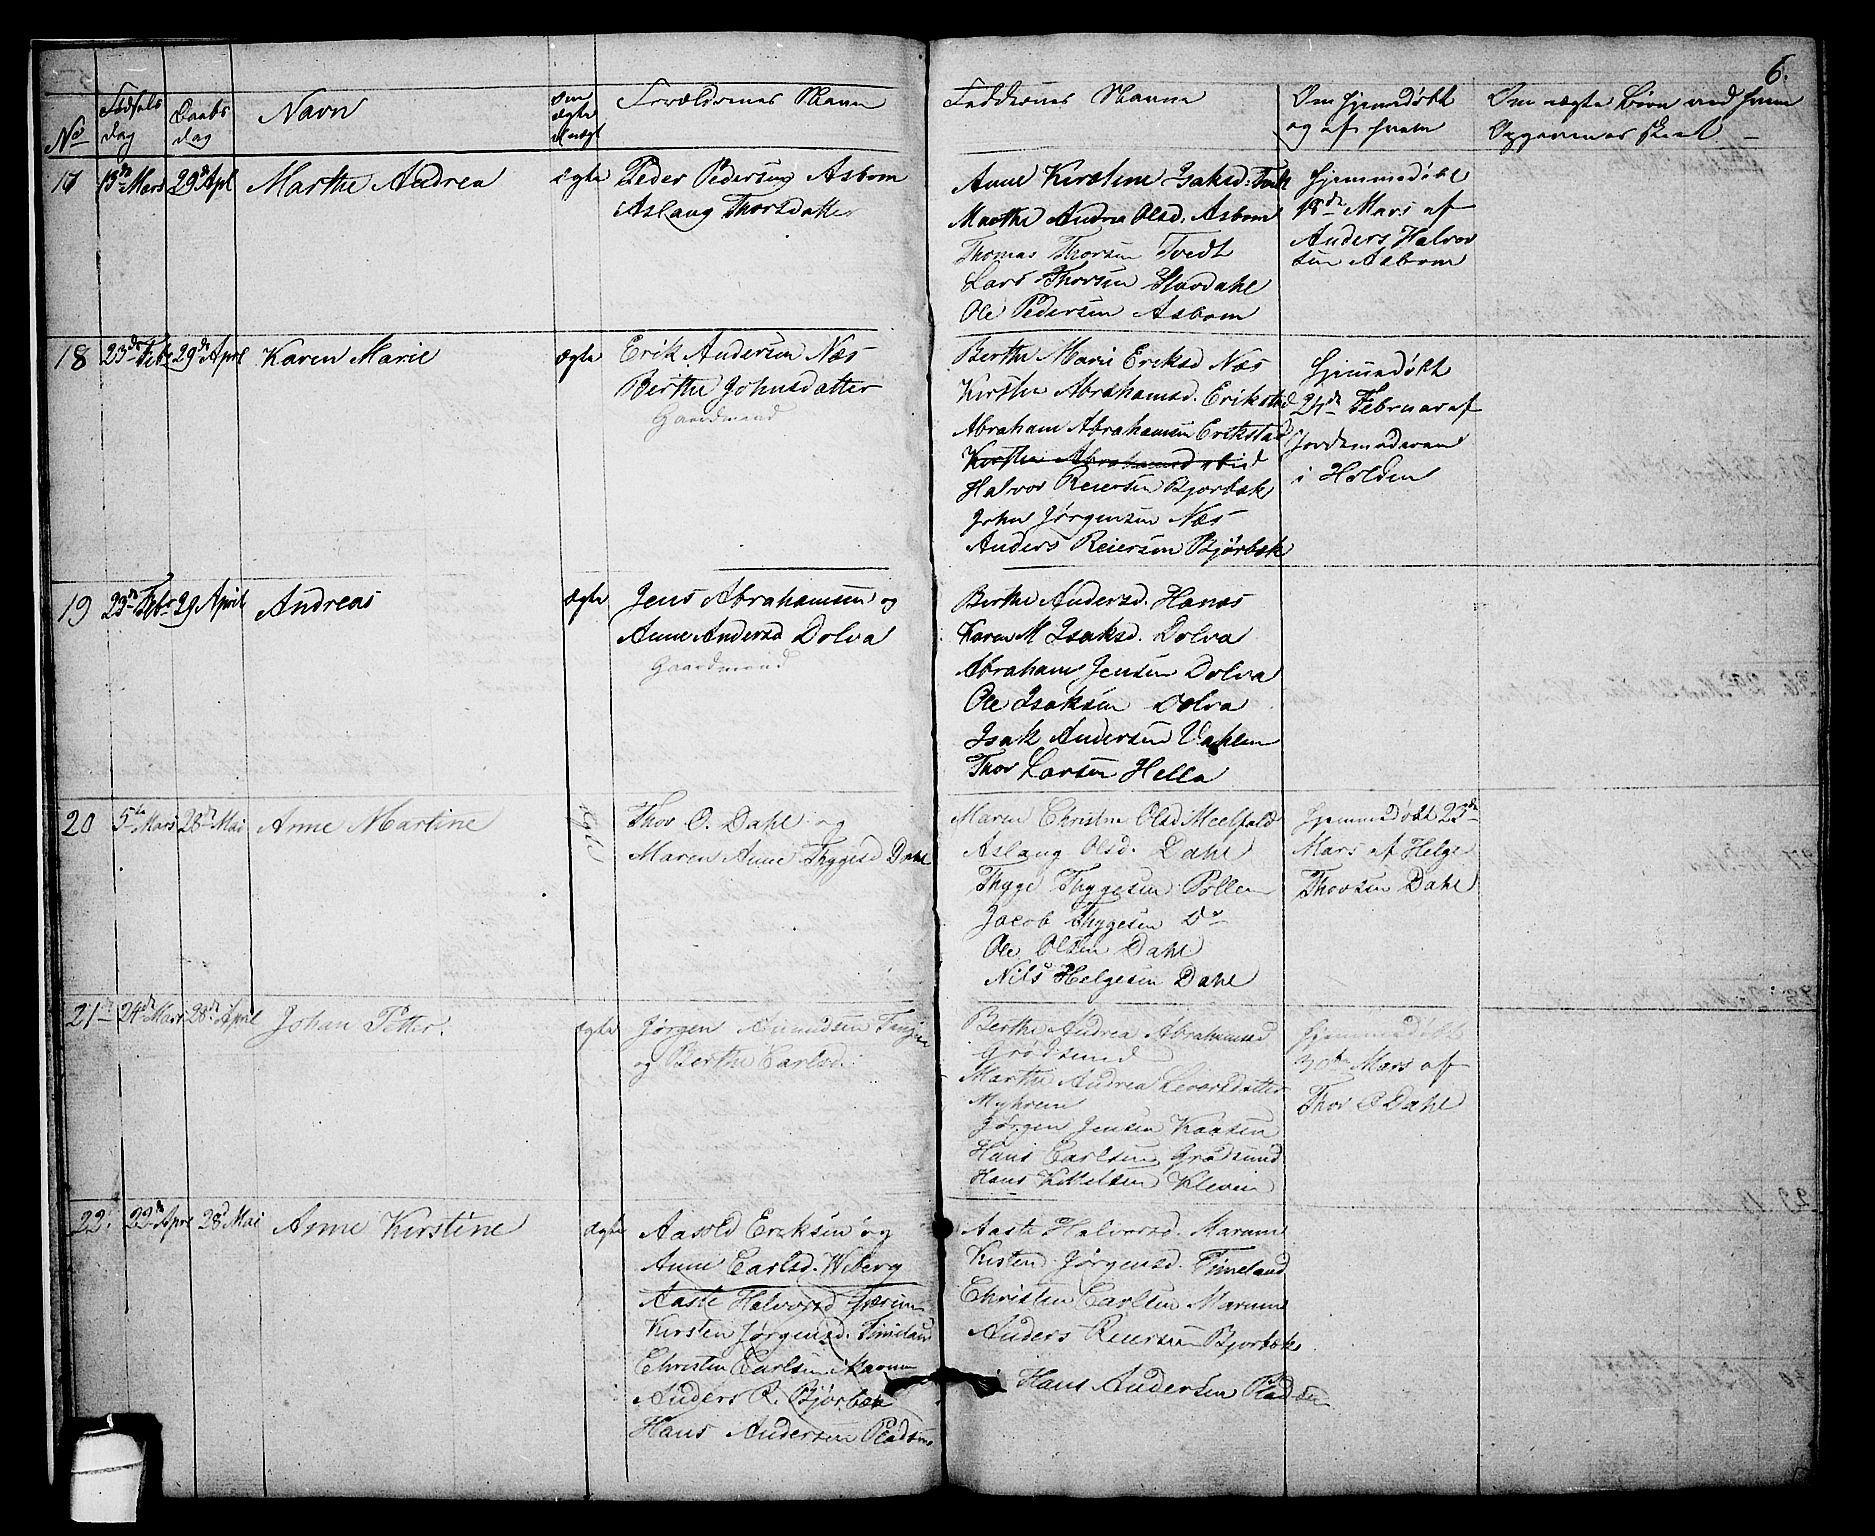 6.
No
Fødsels dag
Daabs dag
Navn
Om ægte
Forældrenes Navne
Faddernes Navne
Om hjemmedøbt og af hvem
Om uægte Børn ved hvem
Opgavenes skeet
17 13de Mars 29de Apl Marthe Andrea ægte
Peder Pedersen Asbom
Aslaug Thorsdatter
Anne Kirstine Isaksd. Tvedt
Marthe Andrea Olsd. Asbom
Thomas Thorsen Tvedt
Lars Thorsen Hovdahl
Ole Pedersen Asbom
Hjemmedøbt
18de Mars af
Anders Halvor
sen Asbom
18 23de Febr 29de April Karen Marie ægte
Erik Andersen Næs
Berthe Johnsdatter
Gaardmand
Berthe Marie Eriksd Næs
Kirsthe Abrahamsd. Erikstad
Abraham Abrahamsen Erikstad
Kirsthe Abrahamsd ibid
Halvor Reiersen Bjorbæk
John Jørgensen Næs
Anders Reiersen Bjørbæk
Hjemmedøbt
24de Februar af
Jordemoderen
i Holden
19 23de Febr 29 April Andreas ægte
Jens Abrahamsen og
Anne Andersd Dolva
Gaardmand
Berthe Andersd. Hanæs
Karen M Isaksd. Dolva
Abraham Jensen Dolva
Ole Isaksen Dolva
Isak Andersen Vahlen
Thor Larsen Hella
20 5te Mars 28de Mai Anne Martine ægte
Thor O. Dahl og
Maren Anne Thygesd Dahl
Maren Christine Olsd Meelfald
Aslaug Olsd. Dahl
Thyge Thygesen Pollen
Jacob Thygesen Do
Ole Olsen Dahl
Nils Helgesen Dahl
Hjemmedøbt 23de
Mars af Helge
Thorsen Dahl
21 24de Mars 28de April Johan Petter. ægte
Jørgen Amundsen
og Berthe Carlsd.
Berthe Andrea Abrahamsd
Grødsund
Marthe Andrea Levorsdatter
Myhren
Jørgen Jensen Kaasen
Hans Carlsen Grødsund
Hans Kittelsen Kleven
Hjemmedøbt
30te Mars af
Thor O Dahl
22. 22de Apri 28d Mai Anne Kirstine ægte
Aasold Eriksen og
Anne Carlsd. Wiberg
Aaste Halvorsd
Kirsten Jørgensd. Timeland
Christen Carlsen Marum
Anders R. Bjørbæk
Hans Andersen Pladsen
Aaste Halvorsd. Marum
Kirsten Jørgensd. Timeland
Christen Carlsen Marum
Anders Reiersen Bjorbæk
Hans Andersen Pladsen